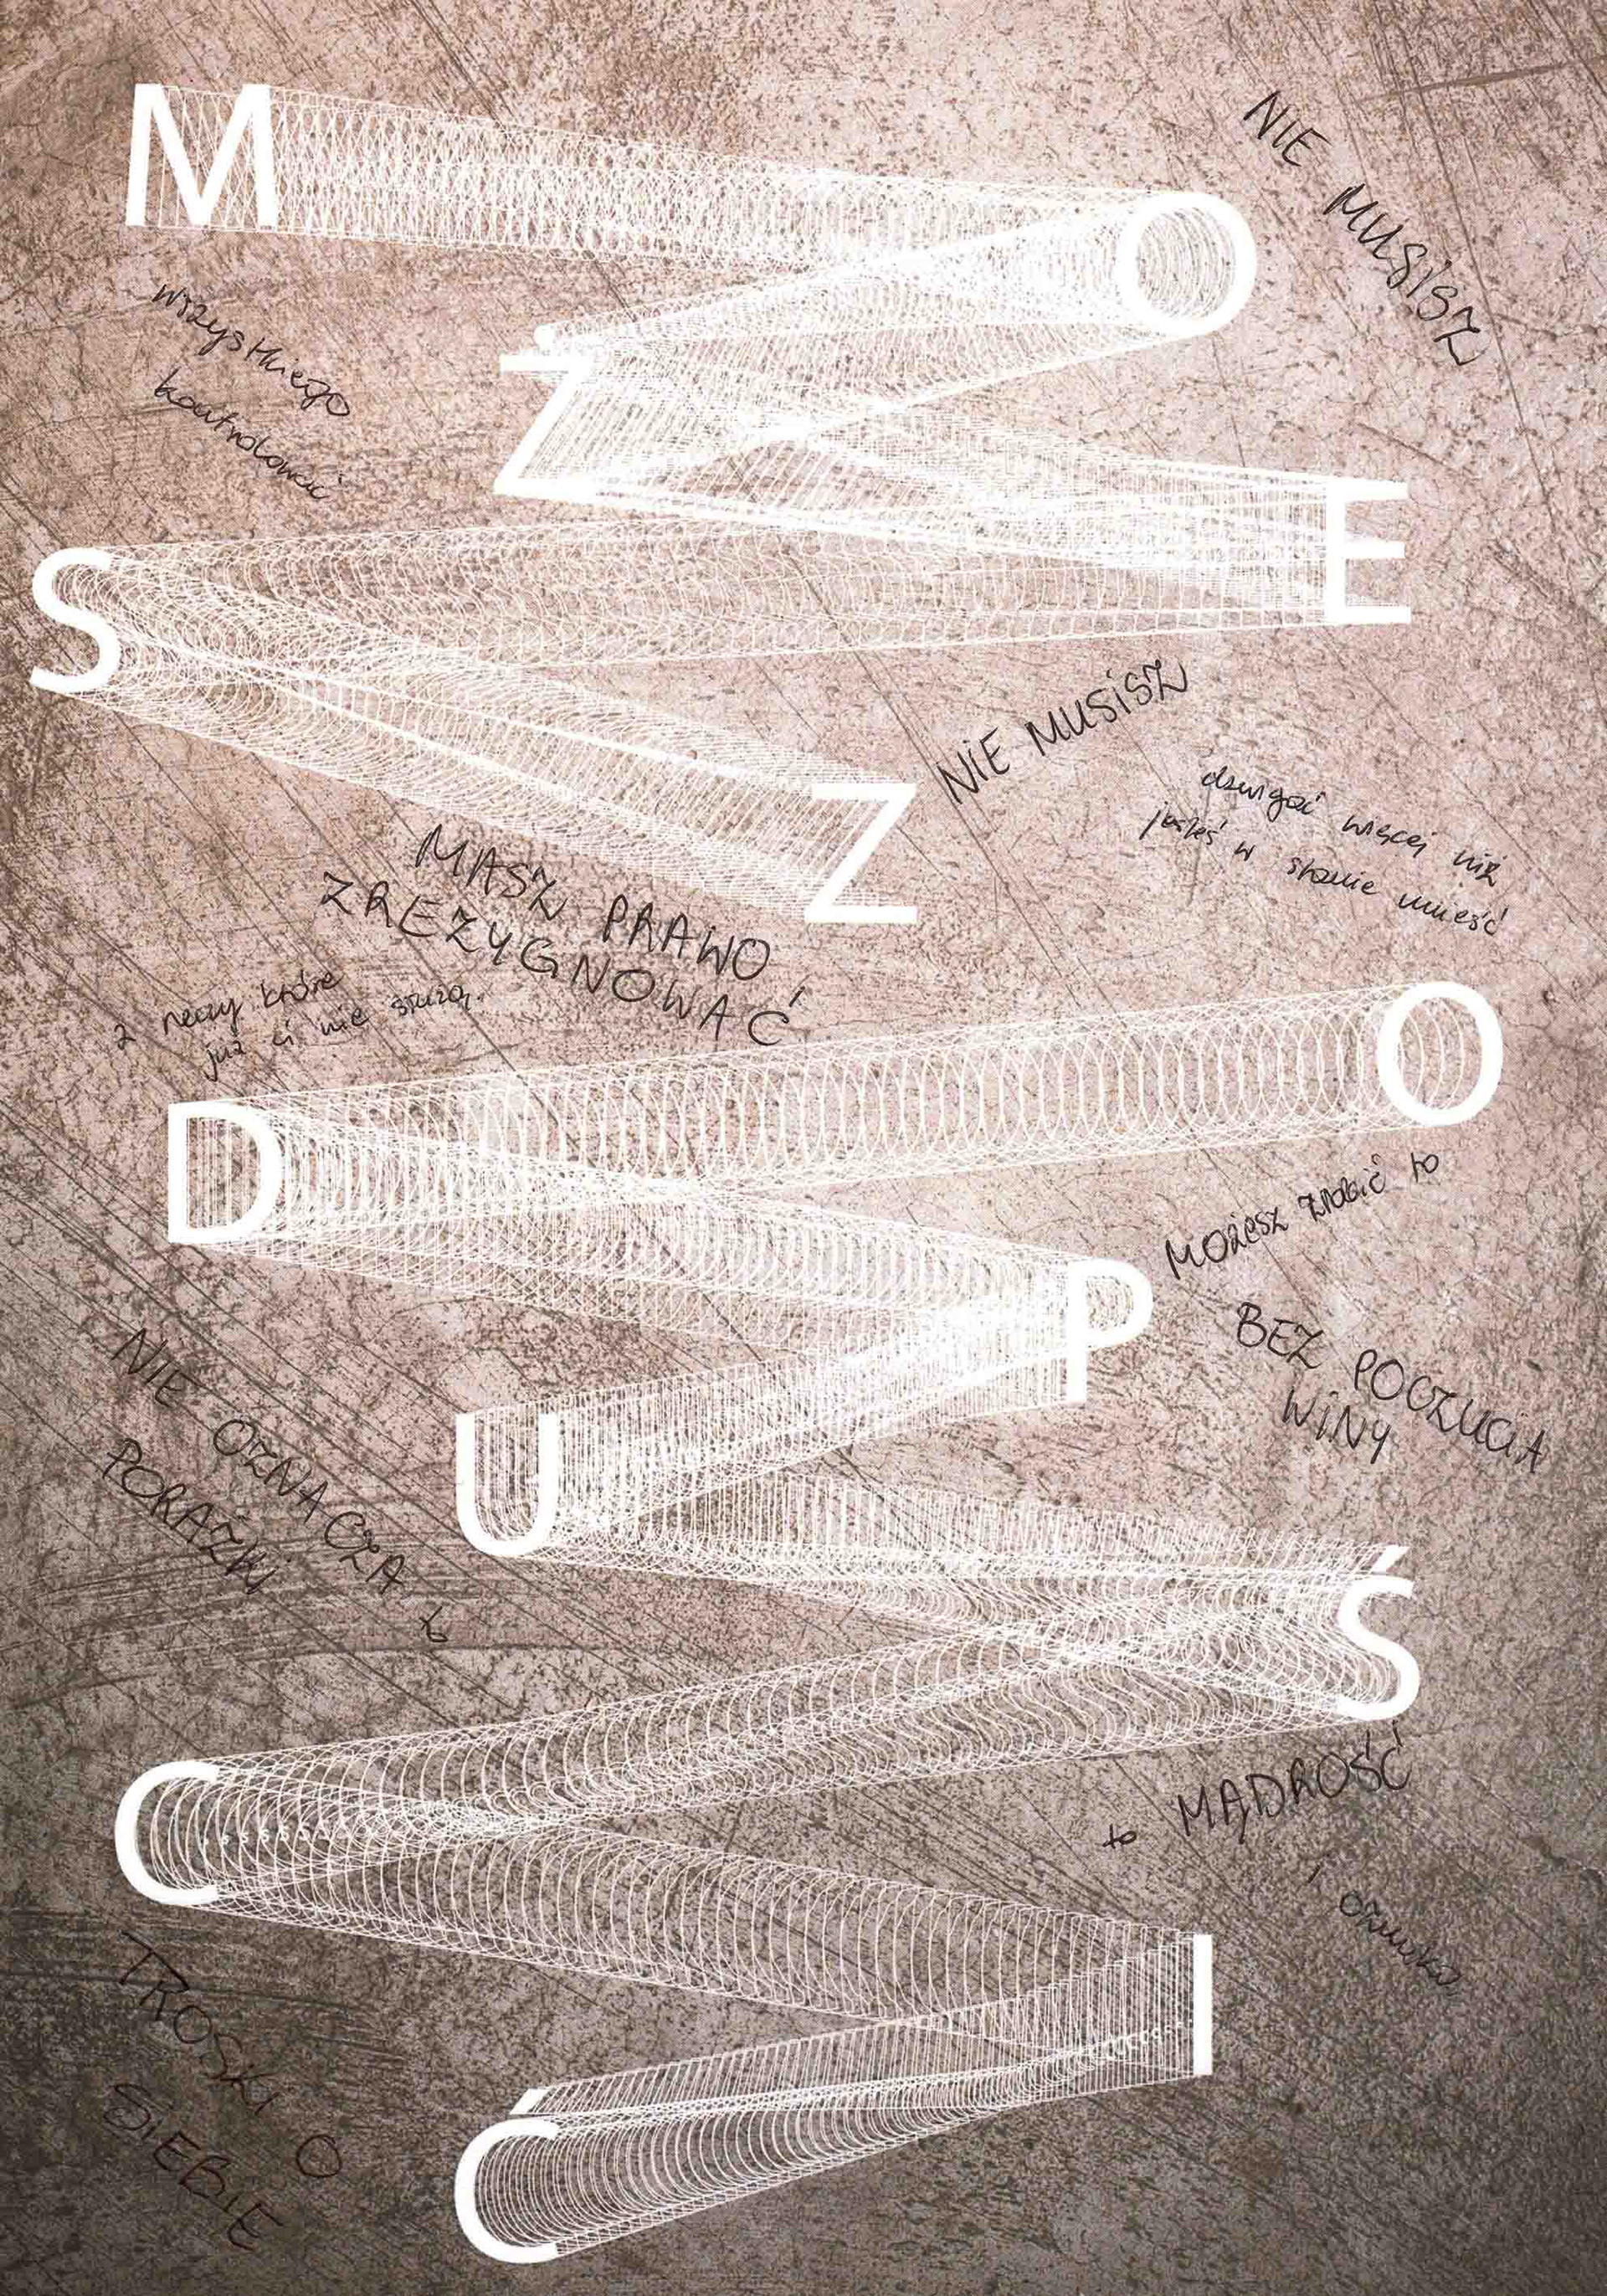 M
O
Ż
E
S
Z
O
D
P
U
Ś
C
I
Ć
NIE MUSISZ
wszystkiego
kontrolować
NIE MUSISZ
dźwigać więcej niż
jesteś w stanie unieść
MASZ PRAWO
ZREZYGNOWAĆ
z rzeczy które
już ci nie służą.
MOŻESZ zrobić to
BEZ POCZUCIA
WINY
NIE OZNACZA to
PORAŻKI
to MĄDROŚĆ
i oznaka
TROSKI O
SIEBIE